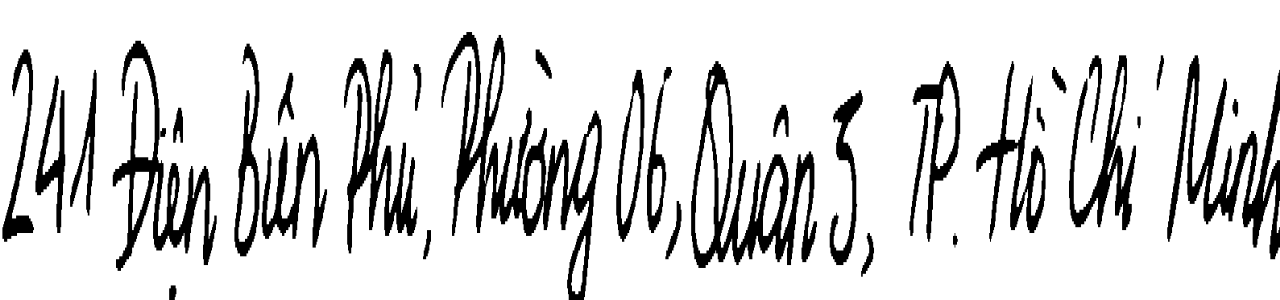 241 Điện Biên Phủ, Phường 06, Quận 3, TP. Hồ Chí Minh